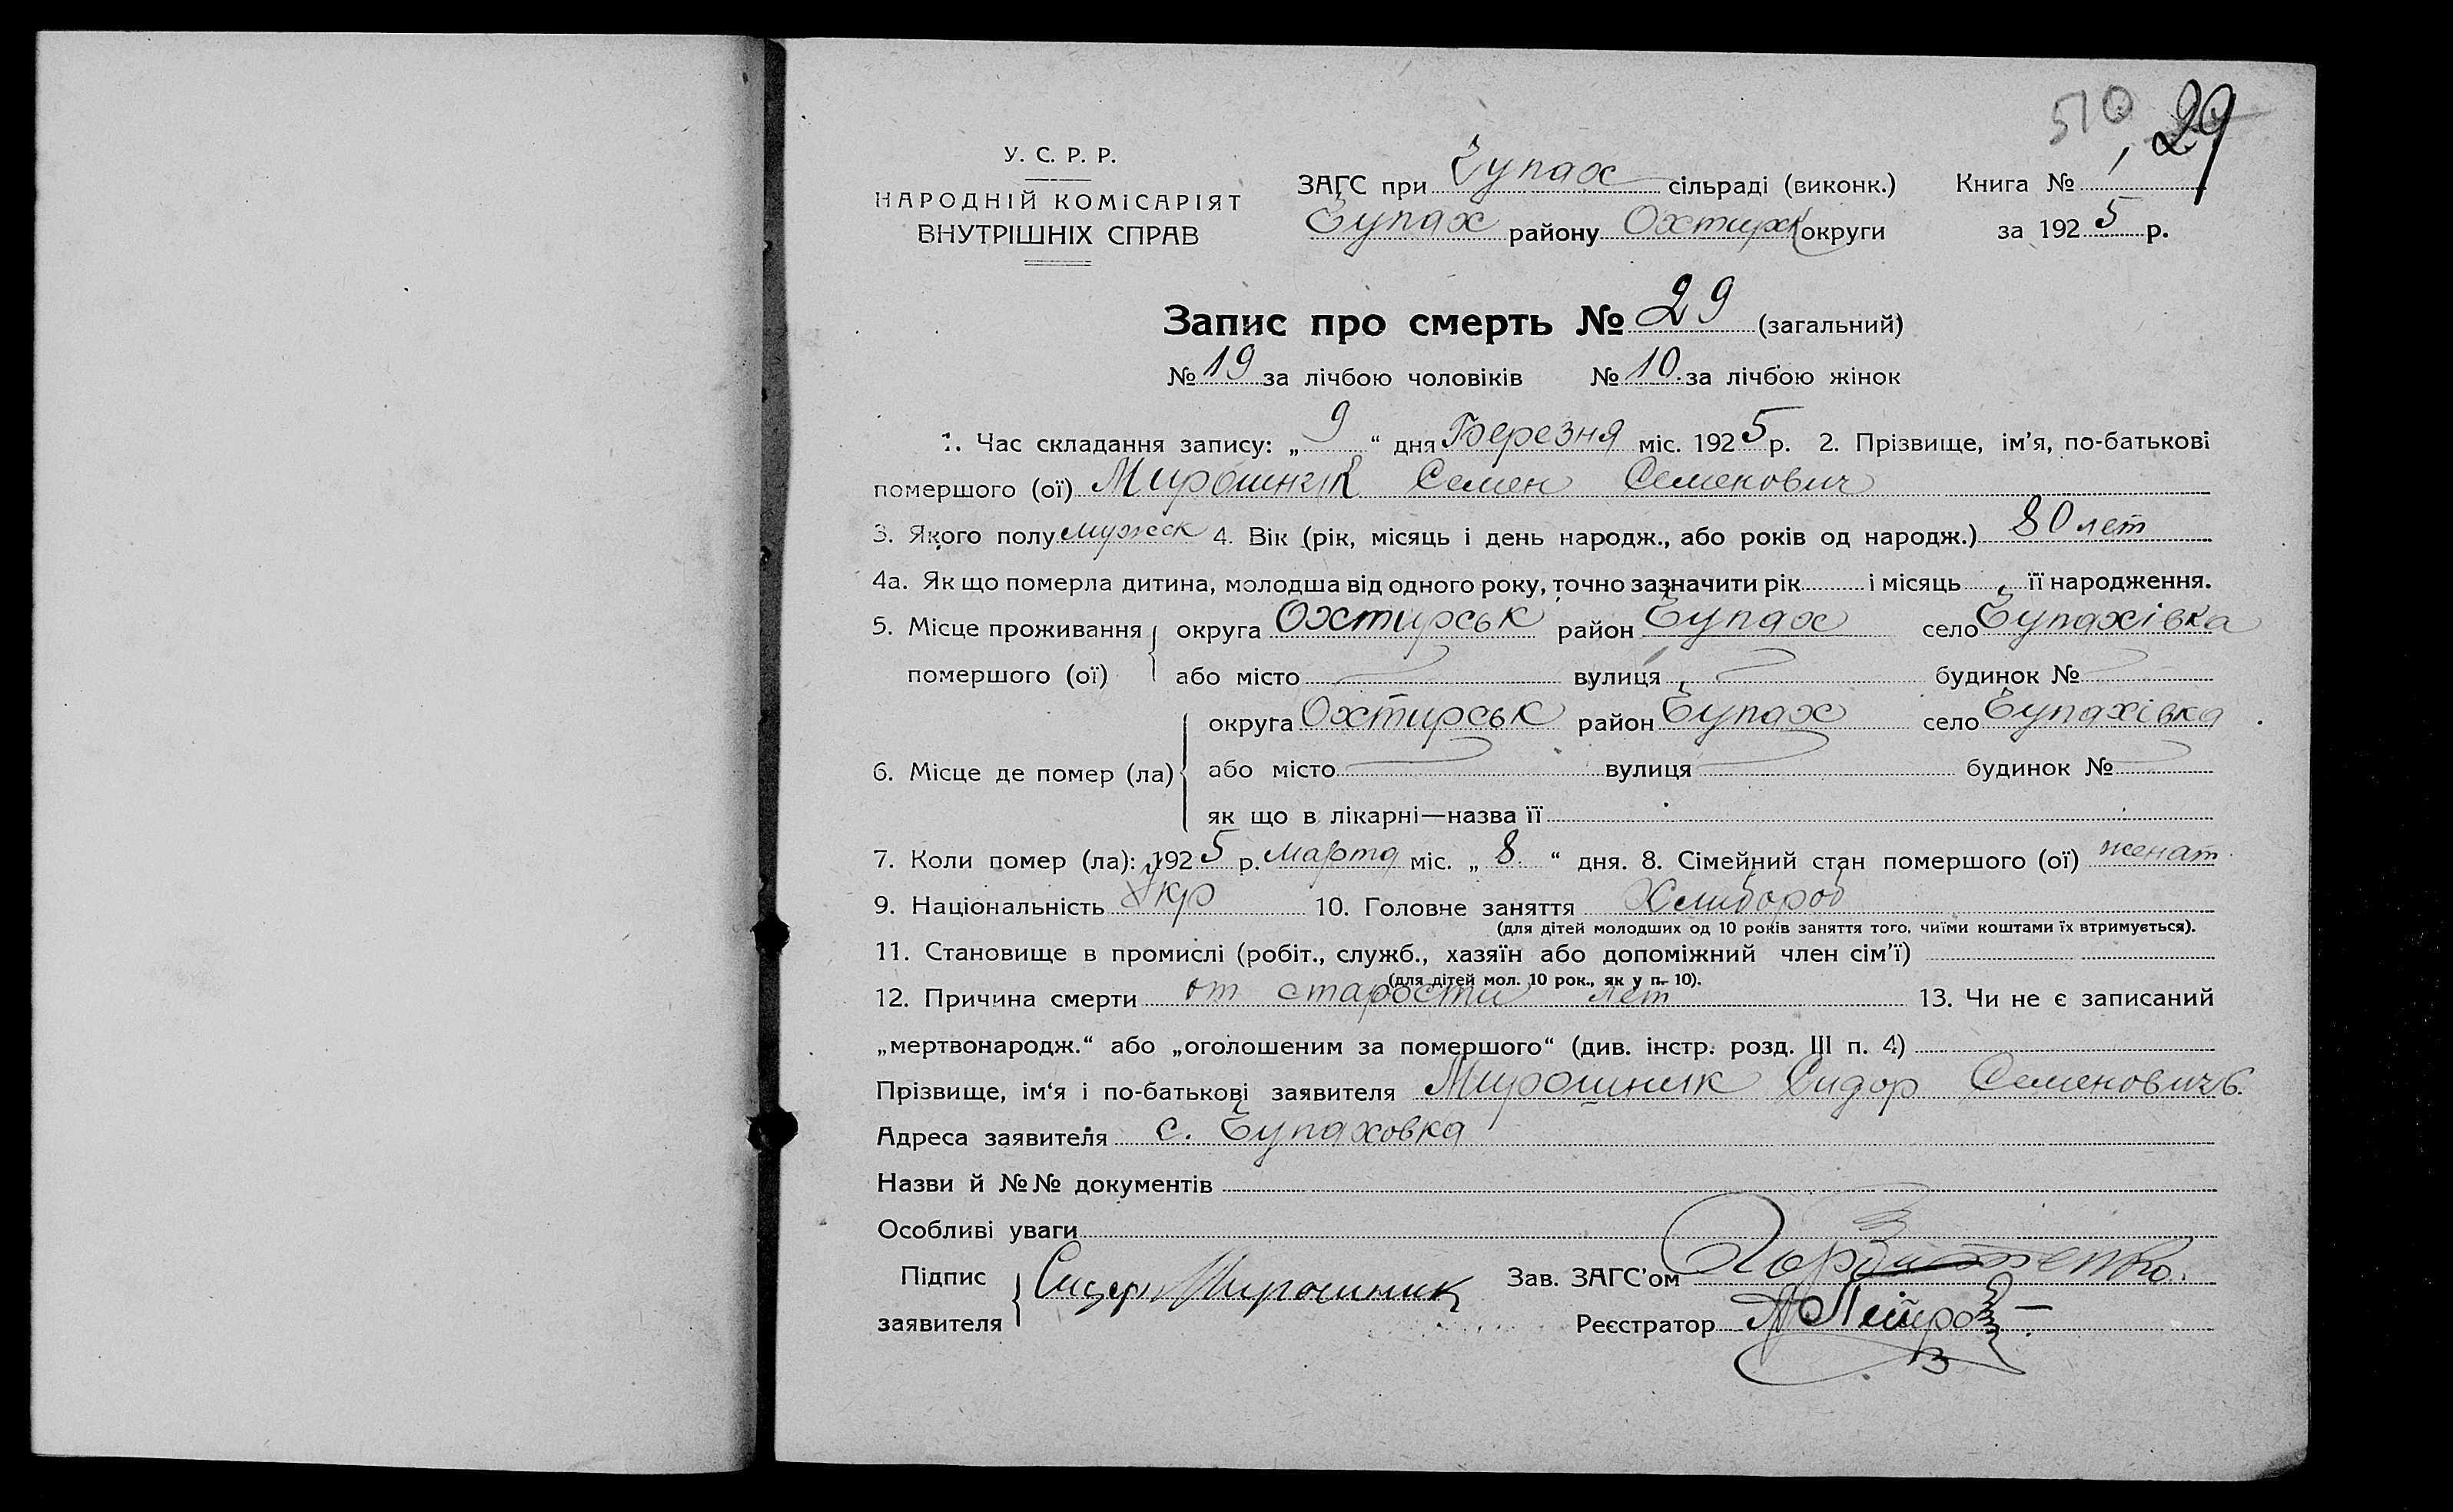 510
, 29
У. С. Р. Р.
НАРОДНІЙ КОМІСАРІЯТ
ВНУТРІШНІХ СПРАВ
ЗАГС при Чупах сільраді (виконк.) Книга №
Чупах району Охтирк округи за 1925 р.
Запис про смерть № 29 (загальний)
№ 19 за лічбою чоловіків № 10. за лічбою жінок
1. Час складання запису: „ 9 “ дня Березня міс. 1925 р. 2. Прізвище, ім’я, по-батькові
помершого (ої) Мирошник Семен Семенович
3. Якого полу мужск 4. Вік (рік, місяць і день народж., або років од народж.) 80 лет
4а. Як що померла дитина, молодша від одного року, точно зазначити рік і місяць її народження.
5. Місце проживання округа Охтирськ район Чупах село Чупахівка
помершого (ої) або місто вулиця будинок №
округа Охтирськ район Чупах село Чупахівка
6. Місце де помер (ла) або місто вулиця будинок №
як що в лікарні—назва її
7. Коли помер (ла): 1925 р. марта міс. „ 8. “ дня. 8. Сімейний стан помершого (ої) женат
9. Національність Укр 10. Головне заняття Хлибороб
(для дітей молодших од 10 років заняття того, чиїми коштами їх втримується).
11. Становище в промислі (робіт., служб., хазяїн або допоміжний член сім’ї)
(для дітей мол. 10 рок., як у п. 10).
12. Причина смерти от старости лет 13. Чи не є записаний
„мертвонародж.“ або „оголошеним за помершого“ (див. інстр. розд. III п. 4)
Прізвище, ім‘я і по-батькові заявителя Мирошник Сидор Семенович
Адреса заявителя с. Чупаховка
Назви й №№ документів
Особливі уваги
Підпис Сидор Мирошник Зав. ЗАГС’ом
заявителя Реєстратор